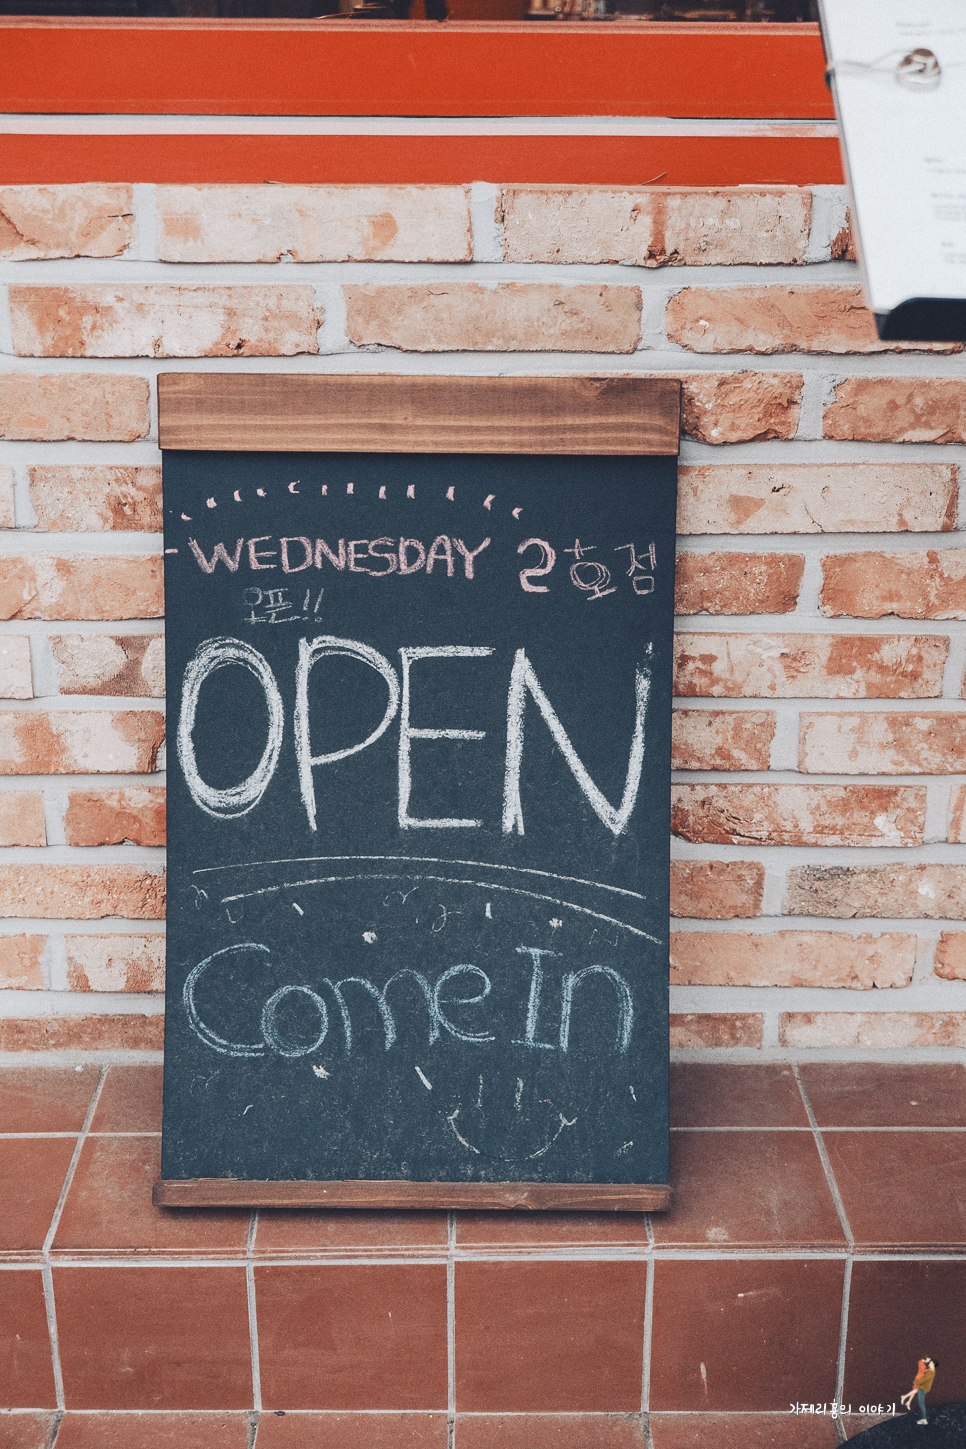 WEDNESDAY 2호점
오픈!!
OPEN
Come In
가제리홍의 이야기